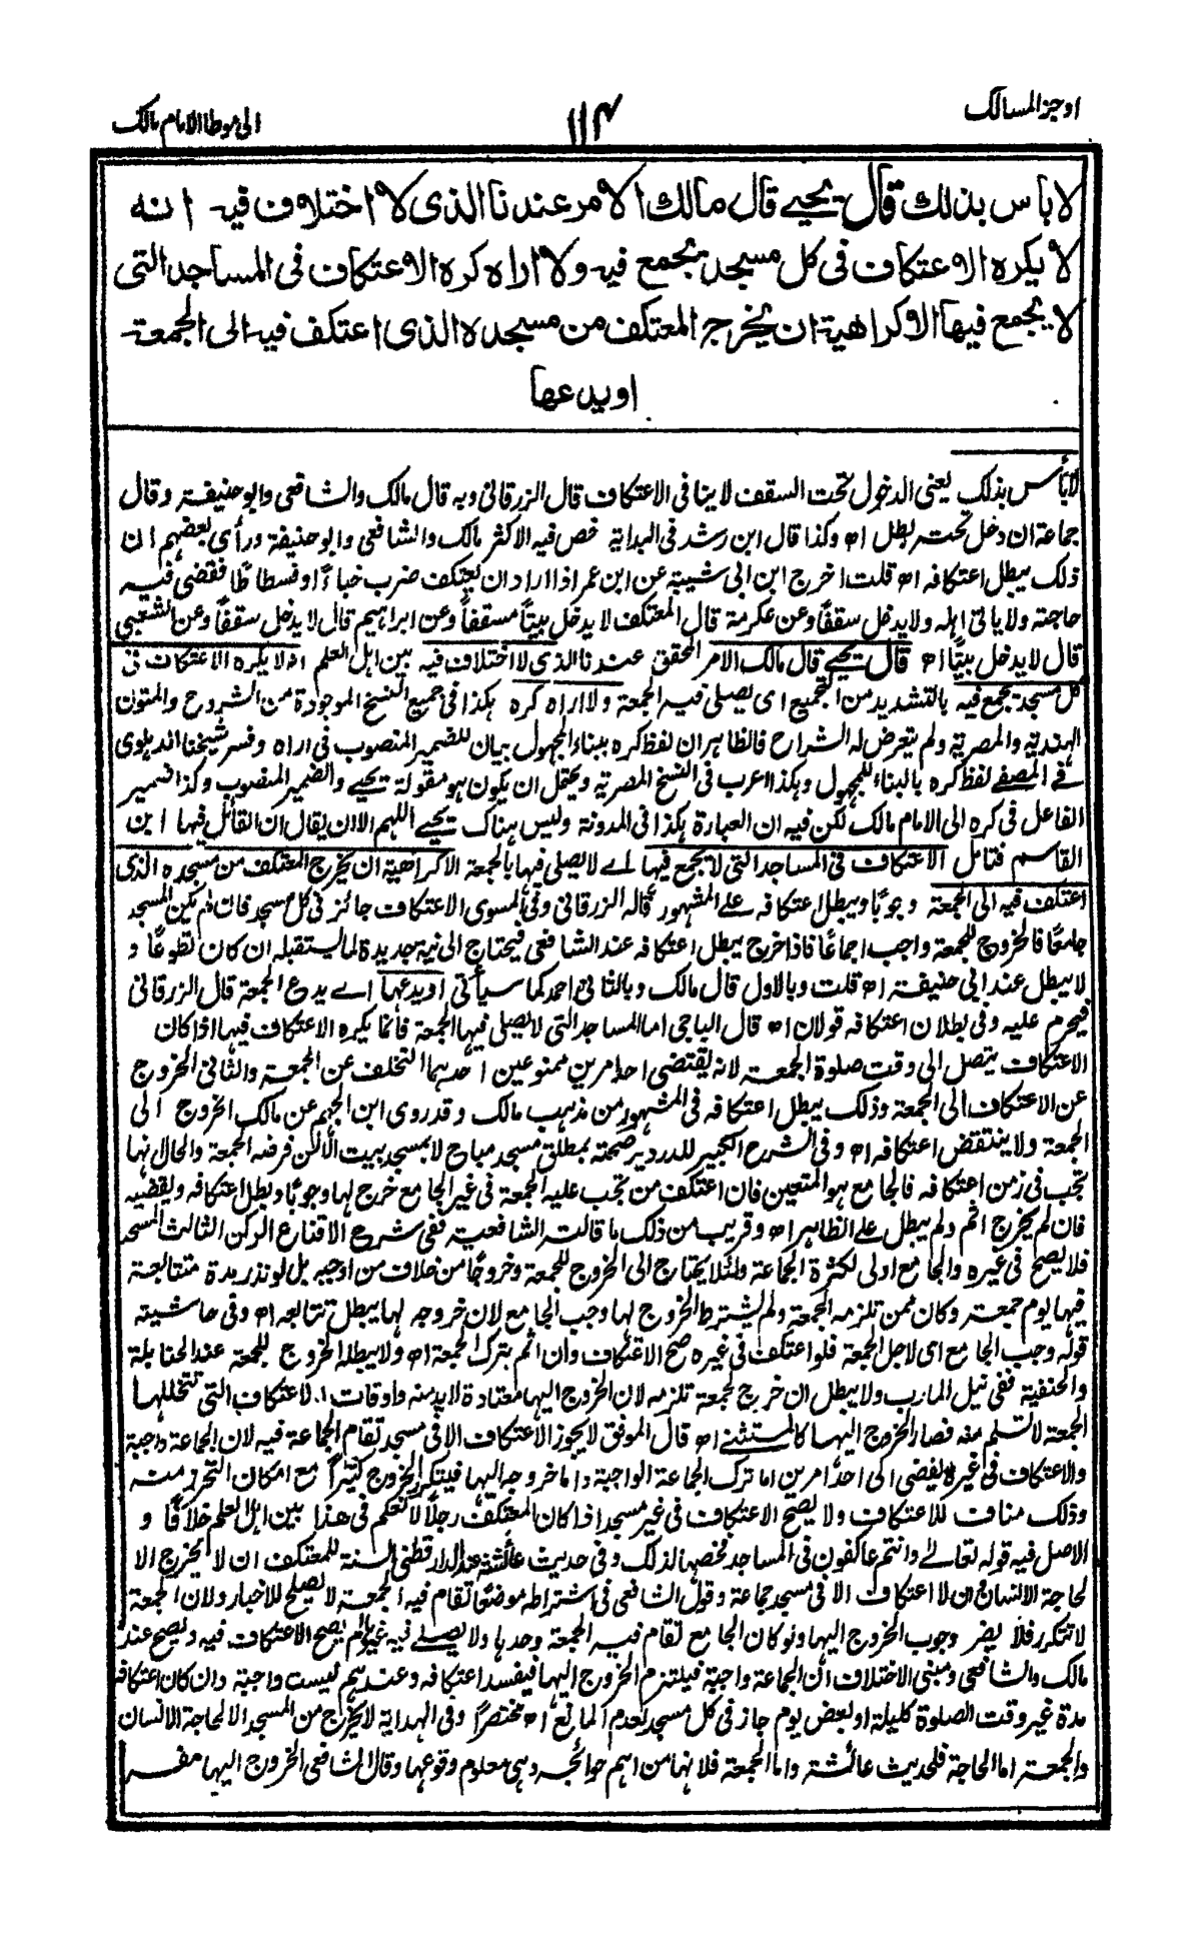 اوجز المسالك
١١٤
الى موطا الامام مالك
لا باس بذلك قال يحيے قال مالك الامر عندنا الذى لا اختلاف فيه انه
لا يكره الاعتكاف فى كل مسجد يجمع فيه ولا اراه كره الاعتكاف فى المساجد التى
لا يجمع فيها الا كراهية ان يخرج المعتكف من مسجده الذى اعتكف فيه الى الجمعة
او يدعها
لا بأس بذلك يعنى الدخول تحت السقف لا ينافى الاعتكاف قال الزرقانى وبه قال مالك والشافعى وابو حنيفة وقال
جماعة ان دخل تحته بطل اه وكذا قال ابن رشد فى البداية خص فيه الاكثر مالك والشافعى وابو حنيفة ورأى بعضهم ان
ذلك يبطل اعتكافه اه قلت اخرج ابن ابى شيبة عن ابن عمر اذا اراد ان يعتكف ضرب خباءً او فسطاطًا فقضى فيه
حاجته ولا ياتى اهله ولا يدخل سقفًا وعن عكرمة قال المعتكف لا يدخل بيتًا مسقفًا وعن ابراهيم قال لا يدخل سقفًا وعن الشعبى
قال لا يدخل بيتًا اه قال يحيے قال مالك الامر المحقق عندنا الذى لا اختلاف فيه بين اهل العلم انه لا يكره الاعتكاف فى
كل مسجد يجمع فيه بالتشديد من التجميع اى يصلى فيه الجمعة ولا اراه كره هكذا فى جميع النسخ الموجودة من الشروح والمتون
الهندية والمصرية ولم يتعرض له الشراح فالظاهر ان لفظ كره ببناء المجهول بيان للضمير المنصوب فى اراه وفسر شيخنا الدهلوى
فے المصفے لفظ كره بالبناء للمجهول وهكذا اعرب فى النسخ المصرية ويحتمل ان يكون هو مقولة يحيے والضمير المنصوب وكذا ضمير
الفاعل فى كره الى الامام مالك لكن فيه ان العبارة هكذا فى المدونة وليس هناك يحيے اللهم الا ان يقال ان القائل فيها ابن
القاسم فتامل الاعتكاف فى المساجد التى لا يجمع فيها اے لا يصلى فيها بالجمعة الا كراهية ان يخرج المعتكف من مسجده الذى
اعتكف فيه الى الجمعة وجوبًا ويبطل اعتكافه علے المشهور قاله الزرقانى وفى المسوى الاعتكاف جائز فى كل مسجد فان لم يكن المسجد
جامعًا فالخروج للجمعة واجب اجماعًا فاذا خرج يبطل اعتكافه عند الشافعى فيحتاج الى نية جديدة لما يستقبله ان كان تطوعًا و
لا يبطل عند ابى حنيفة اه قلت وبالاول قال مالك وبالثانى احمد كما سيأتى او يدعها اے يدع الجمعة قال الزرقانى
فيحرم عليه وفى بطلان اعتكافه قولان اه قال الباجى اما المساجد التى لا يصلى فيها الجمعة فانما يكره الاعتكاف فيها اذا كان
الاعتكاف يتصل الى وقت صلوة الجمعة لانه يقتضى احد امرين ممنوعين احدهما التخلف عن الجمعة والثانى الخروج
عن الاعتكاف الى الجمعة وذلك يبطل اعتكافه فى المشهور من مذهب مالك وقد روى ابن الجهم عن مالك الخروج الى
الجمعة ولا ينتقض اعتكافه اه وفى الشرح الكبير للدردير صحته بمطلق مسجد مباح لا بمسجد بيت الا لمن فرضه الجمعة والحال انها
تجب فى زمن اعتكافه فالجامع هو المتعين فان اعتكف من تجب عليه الجمعة فى غير الجامع خرج لها وجوبًا وبطل اعتكافه ويقضيه
فان لم يخرج اثم ولم يبطل علے الظاهر اه وقريب من ذلك ما قالت الشافعية ففى شرح الاقناع الركن الثالث المسجد
فلا يصح فى غيره والجامع اولى لكثرة الجماعة ولئلا يحتاج الى الخروج للجمعة وخروجًا من خلاف من اوجبه بل لو نذر مدة متتابعة
فيها يوم جمعة وكان ممن تلزمه الجمعة ولم يشترط الخروج لها وجب الجامع لان خروجه لها يبطل تتابعه اه وفى حاشيته
قوله وجب الجامع اى لاجل الجمعة فلو اعتكف فى غيره صح الاعتكاف وان اثم بترك الجمعة اه ولا يبطله الخروج للجمعة عند الحنابلة
والحنفية ففى نيل المارب ولا يبطل ان خرج لجمعة تلزمه لان الخروج اليها معتادة لا بد منه واوقات الاعتكاف التى تتخللها
الجمعة لا تسلم منه فصار الخروج اليها كالمستثنے اه قال الموفق لا يجوز الاعتكاف الا فى مسجد تقام الجماعة فيه لان الجماعة واجبة
والاعتكاف فى غيره يفضى الى احد امرين اما ترك الجماعة الواجبة واما خروجه اليها فيتكرر الخروج كثيرًا مع امكان التحرز منه
وذلك مناف للاعتكاف ولا يصح الاعتكاف فى غير مسجد اذا كان المعتكف رجلًا لا نعلم فى هذا بين اهل العلم خلافًا و
الاصل فيه قوله تعالىٰ وانتم عاكفون فى المساجد فخصها لذلك وفى حديث عائشة عند الدارقطنى السنة للمعتكف ان لا يخرج الا
لحاجة الانسان وان لا اعتكاف الا فى مسجد جماعة وقول الشافعى فى اشتراطه موضعًا تقام فيه الجمعة لا يصلح للاخبار ولان الجمعة
لا تتكرر فلا يضر وجوب الخروج اليها ولو كان الجامع تقام فيه الجمعة وحدها ولا يصلے فيه غيرها لم يصح الاعتكاف فيه ويصح عند
مالك والشافعى ومبنى الاختلاف ان الجماعة واجبة فيلتزم الخروج اليها فيفسد اعتكافه وعندهم ليست واجبة وان كان اعتكافه
مدة غير وقت الصلوة كليلة او بعض يوم جاز فى كل مسجد لعدم المانع اه مختصرًا وفى الهداية لا يخرج من المسجد الا لحاجة الانسان
والجمعة اما الحاجة فلحديث عائشة واما الجمعة فلانها من اهم حوائجه وهى معلوم وقوعها وقال الشافعى الخروج اليها مفسد